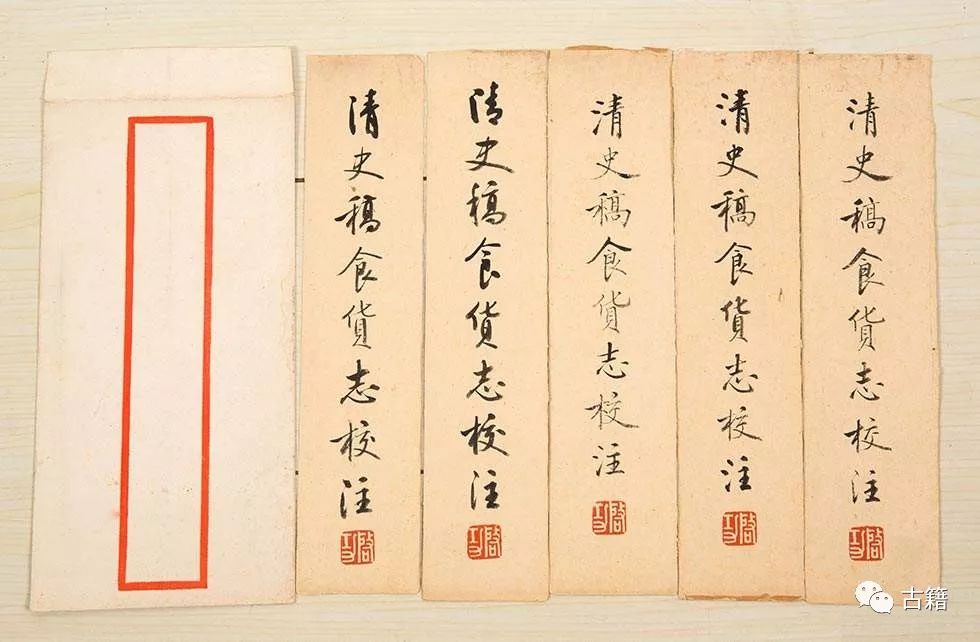 清史稿食貨志校注
啓功
清史稿食貨志校注
啓功
清史稿食貨志校注
啓功
清史稿食貨志校注
啓功
清史稿食貨志校注
啓功
古籍